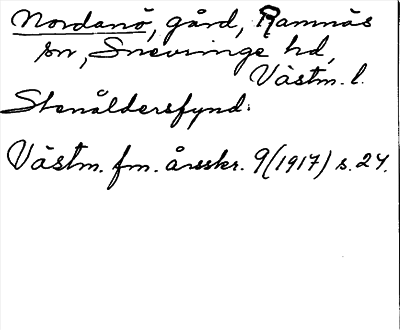 Nordanö, gård, Ramnäs
sn, Snevringe hd,
Västm. l.
Stenåldersfynd:
Västm. fm. årsskr. 9(1917) s. 24.